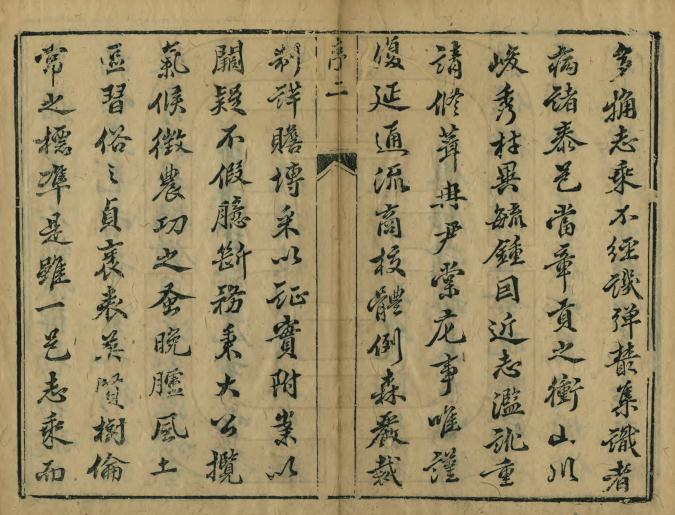 多痡志乘不經譏彈叢集識者
病諸泰邑當章貢之衝山川
峻秀材異毓鍾目近志濫訛重
請修葺與尹棠庀事唯謹
復延通流商校體例森嚴裁
序二
制詳贍博采以証實附案以
闕疑不假臆斷務秉大公攬
氣候徵農功之蚤晚臚風土
區習俗之貞衺表英賢樹倫
常之標準是雖一邑志乘而